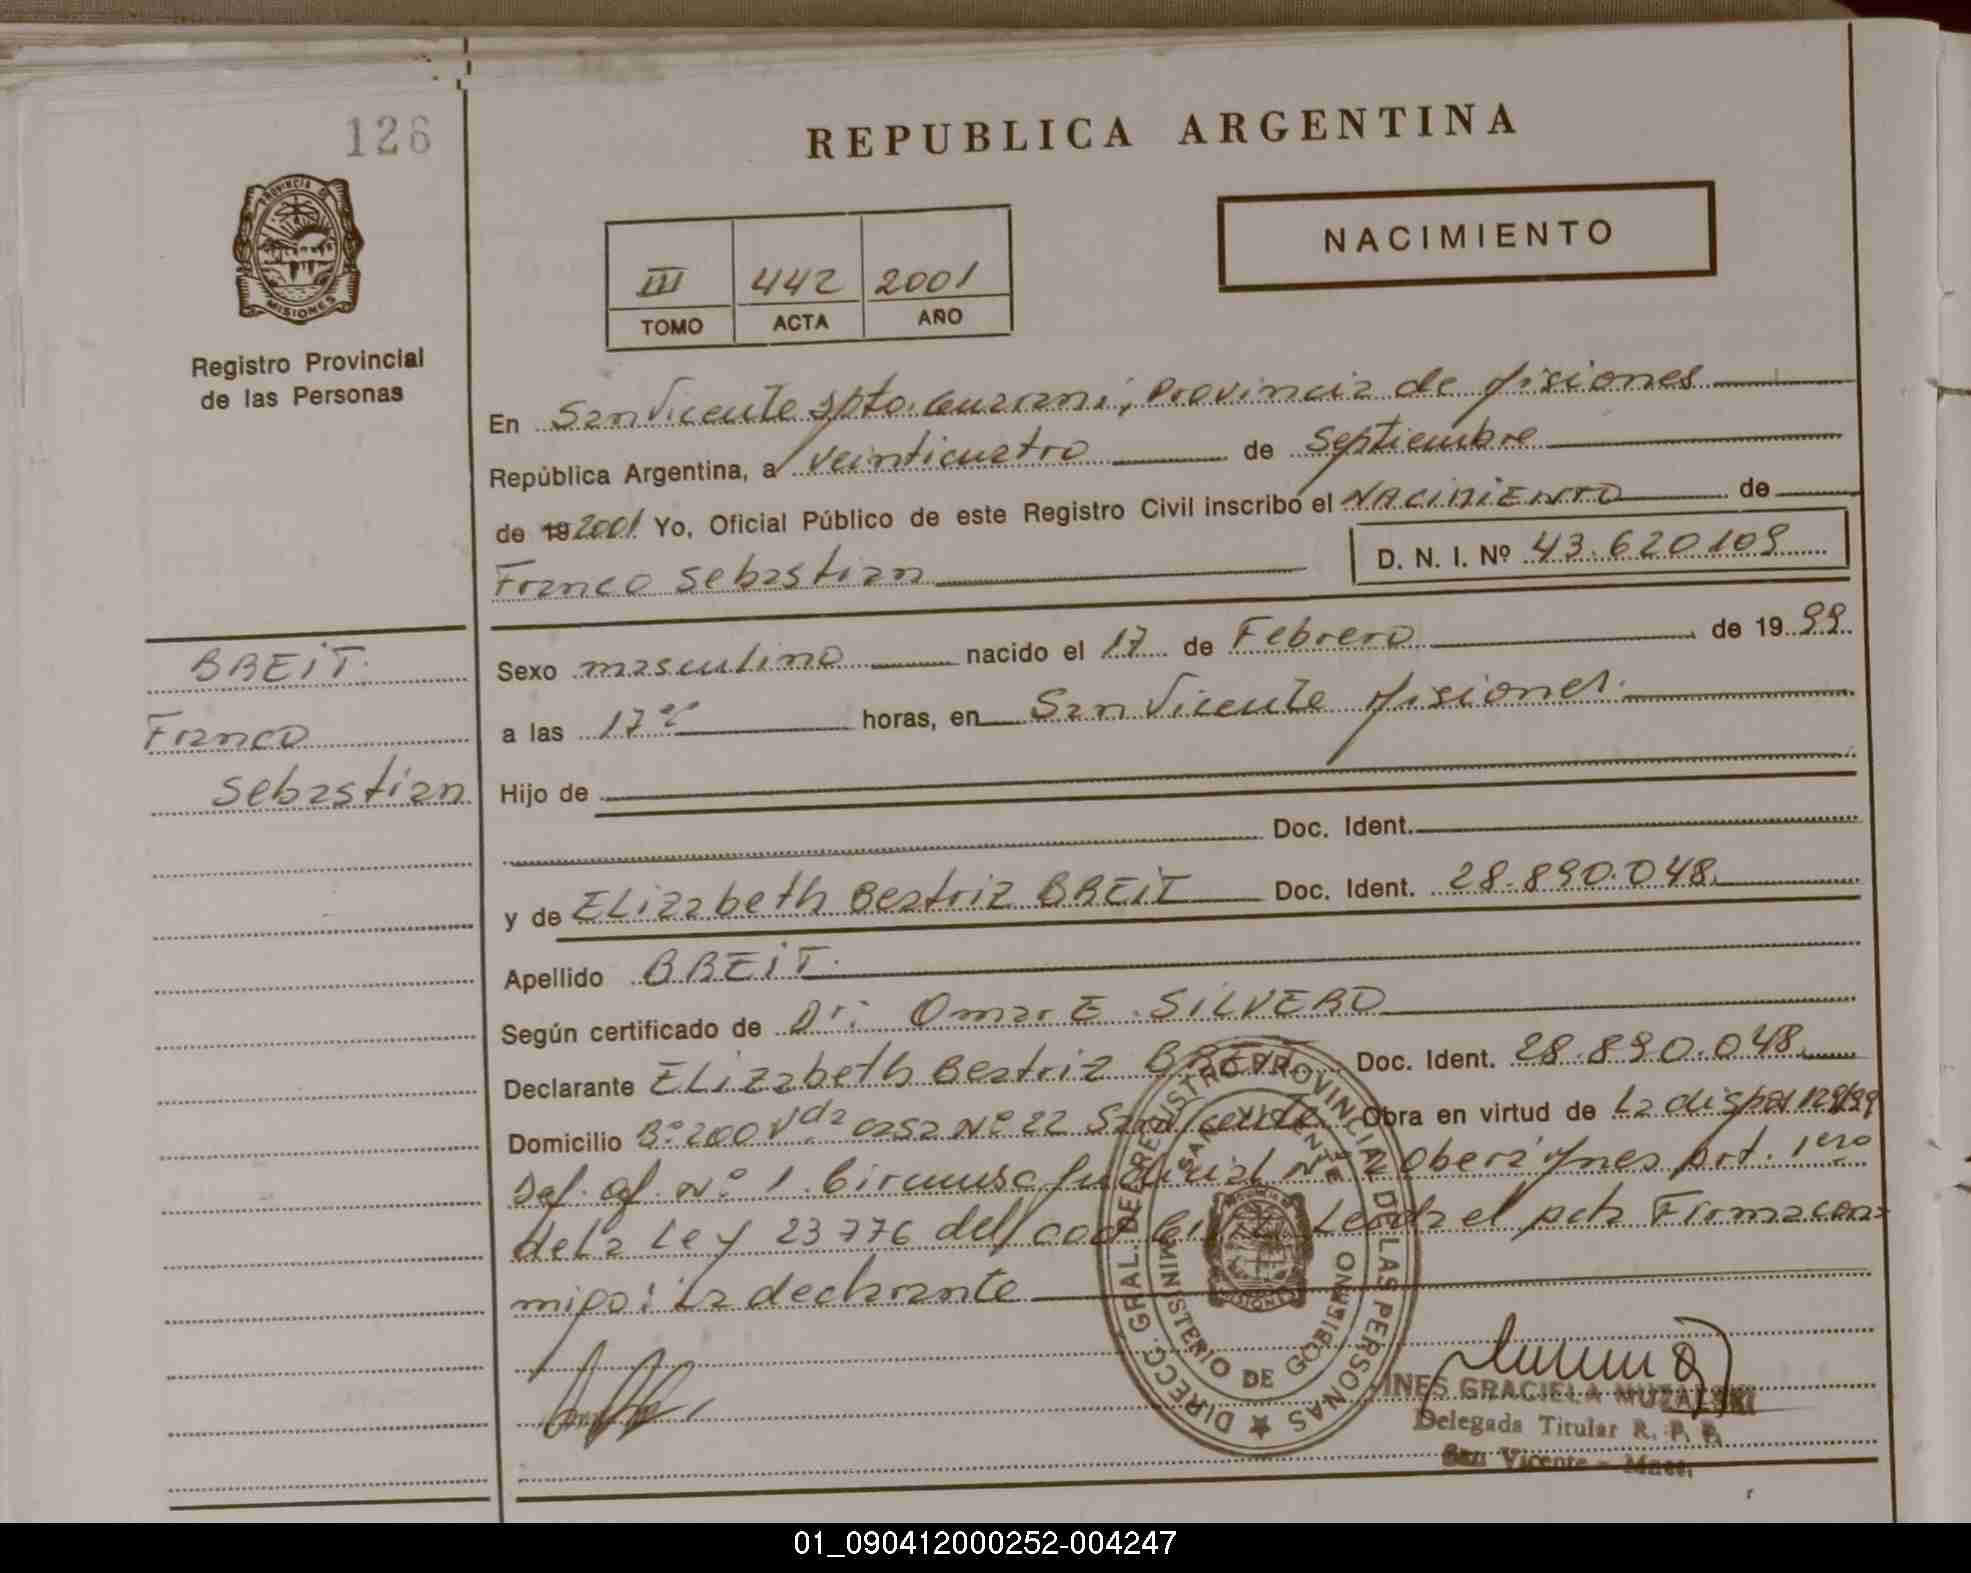 126
REPUBLICA ARGENTINA
PROVINCIA DE
MISIONES
Registro Provincial
de las Personas
NACIMIENTO
III 442 2001
TOMO ACTA AÑO
En San Vicente Dpto. Guarani, Provincia de Misiones
República Argentina, a veinticuatro de Septiembre
de 19 2001 Yo, Oficial Público de este Registro Civil inscribo el NACIMIENTO de
Franco Sebastian D. N. I. Nº 43.620109
BREIT.
Franco
Sebastian
Sexo masculino nacido el 17 de Febrero de 19 99
a las 17 horas, en San Vicente Misiones.
Hijo de
Doc. Ident.
y de Elizabeth Beatriz BREIT Doc. Ident. 28.890.048.
Apellido BREIT.
Según certificado de Dr: Omar E. SILVERO
Declarante Elizabeth Beatriz BREIT. Doc. Ident. 28.890.048.
Domicilio Bº 200 Vdas casa Nº 22 San Vicente. Obra en virtud de La dispos 129/99
Def. of. Nº 1 Circunsc Judicial Nº 2 Obera Mnes art. 1ero
de la Ley 23776 del cod Civil Leida el acta Firma con-
migo: La declarante
DIRECC. GRAL. DEL REGISTRO PROVINCIAL DE LAS PERSONAS
MINISTERIO DE GOBIERNO
SAN VICENTE
MISIONES
INES GRACIELA MUZALSKI
Delegada Titular R. P. P.
San Vicente - Mnes.
01_090412000252-004247